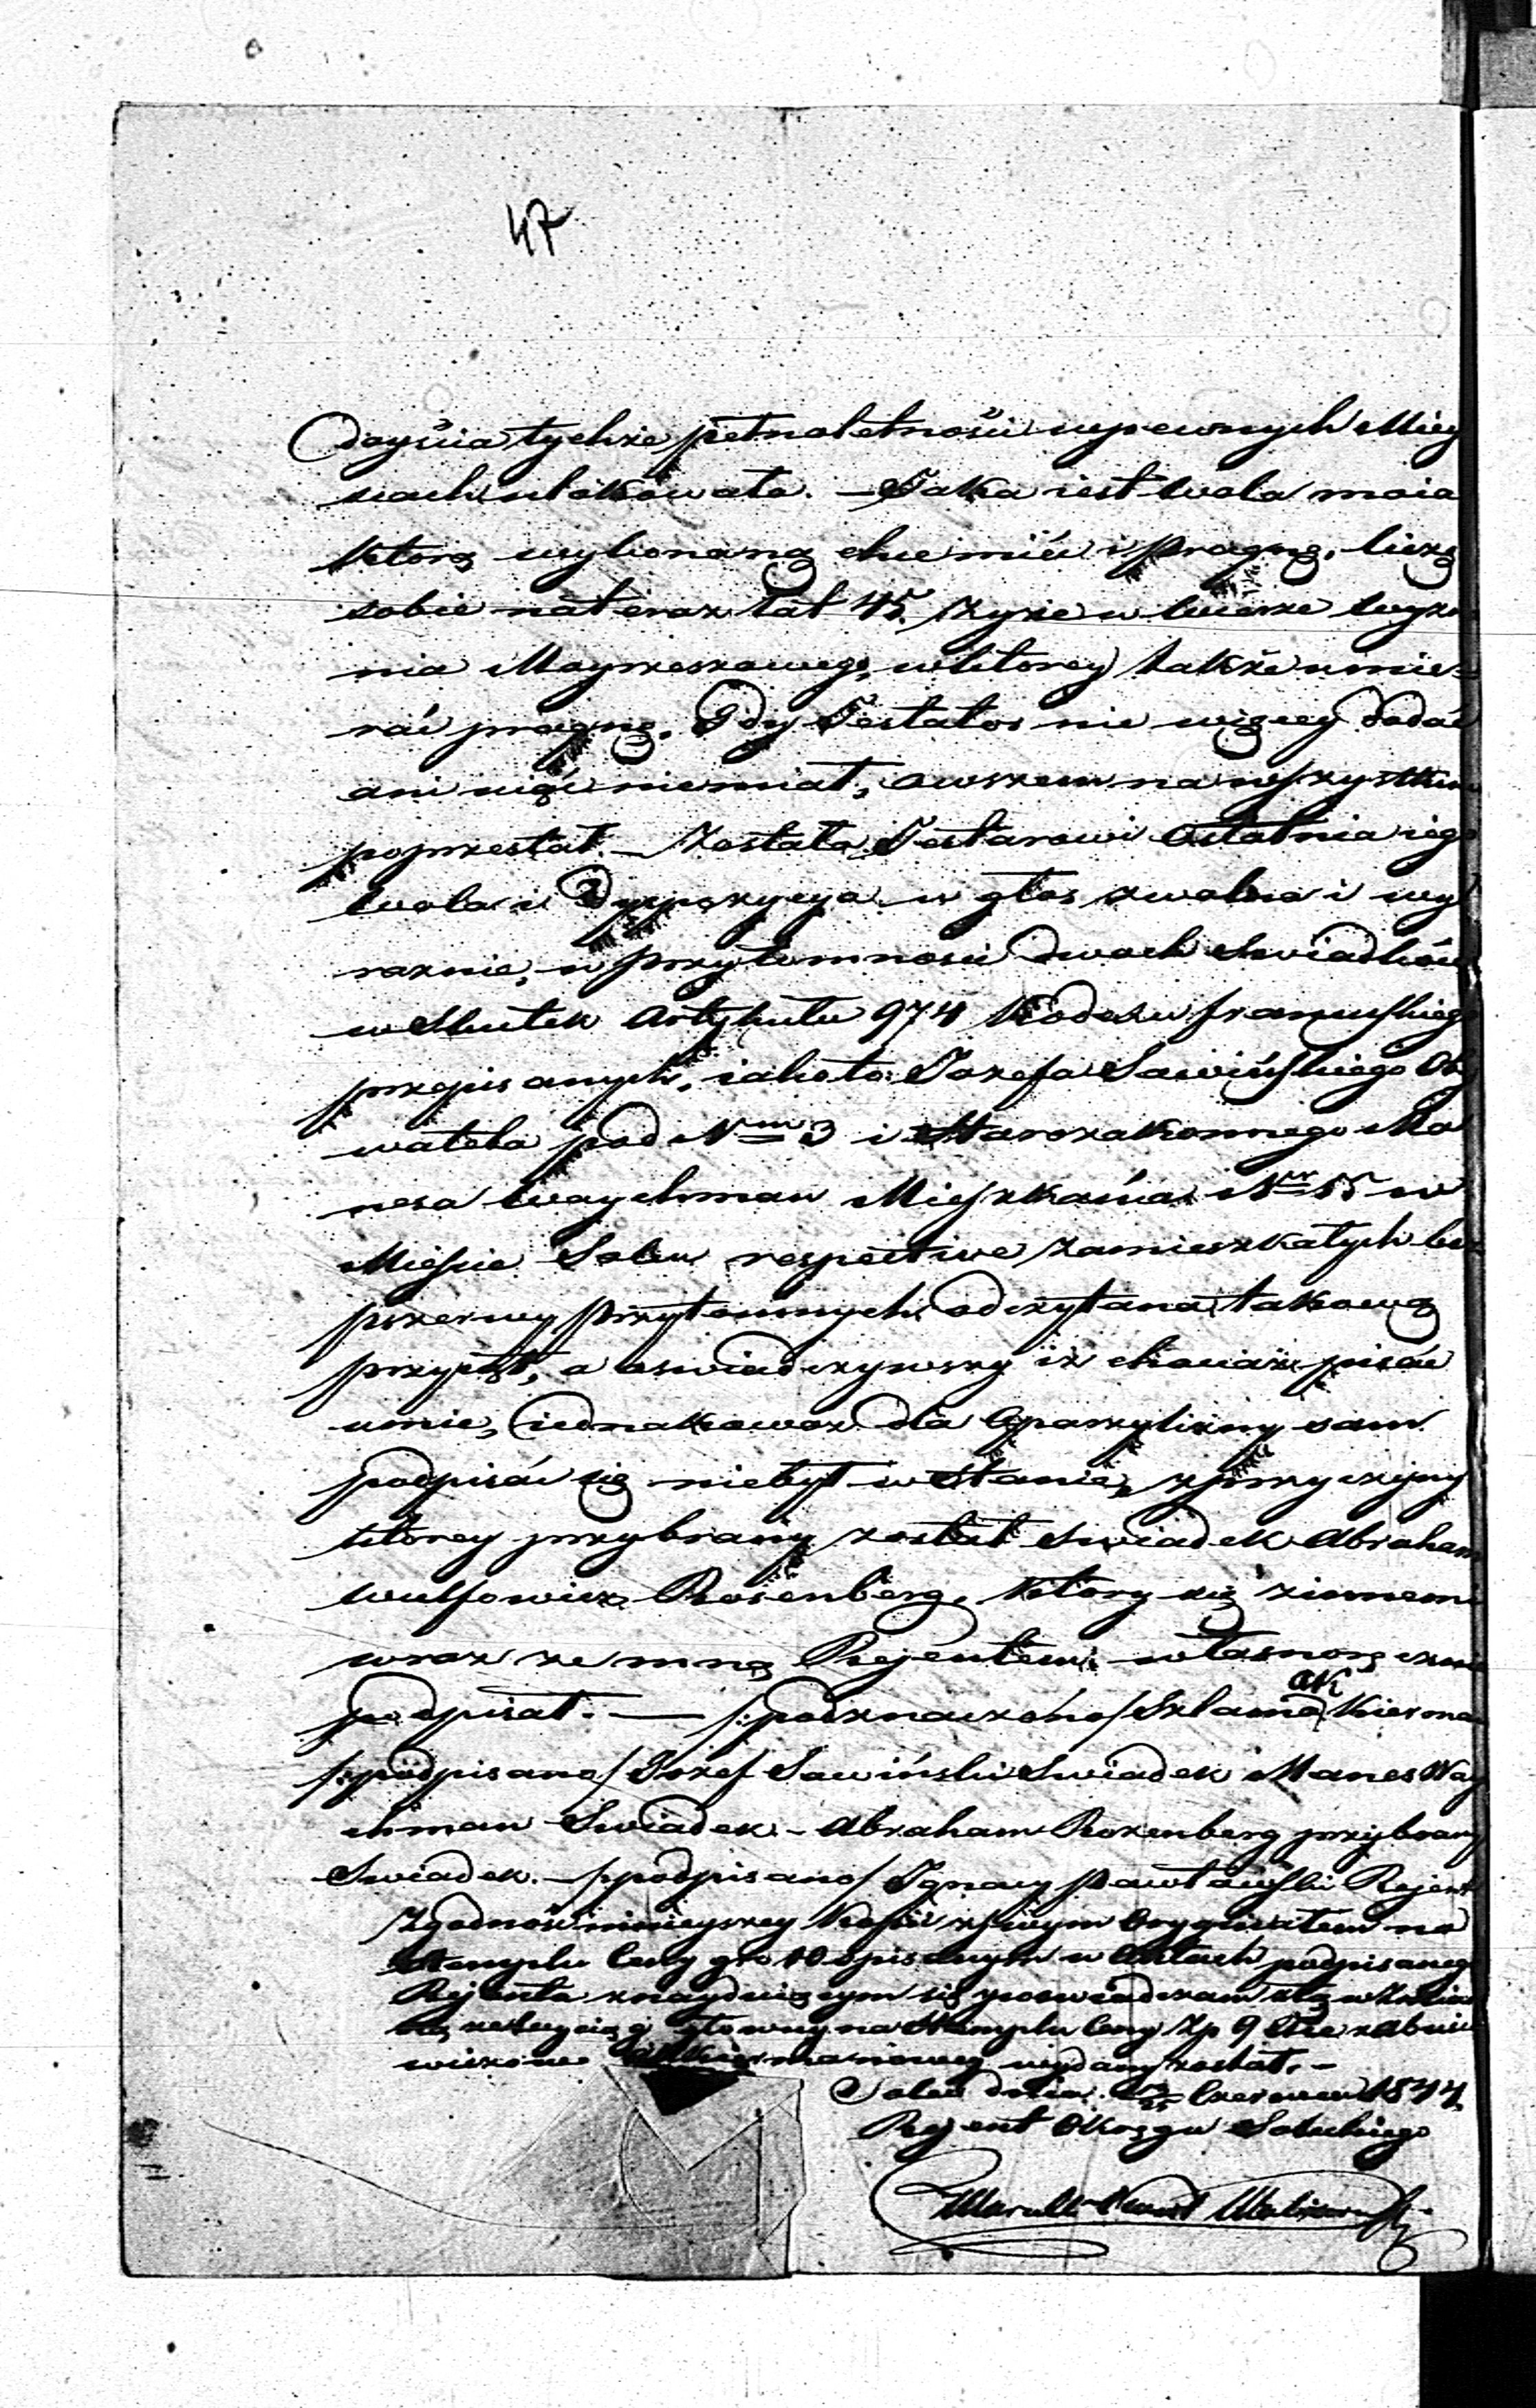 47
doyścia tychże pełnoletności w pewnych Miey
scach ulokowała. — Taka iest wola moia
którą wykonaną chcę mieć i pragnę, liczę
sobie na teraz lat 45. Żyję w wierze wyzna
nia Moyżeszowego, w którey także umie=
rać pragnę. Gdy Testator nic więcey dodać
ani uiąć niemiał, owszem na wszystkim
poprzestał. — Została Testarowi Ostatnia iego
wola i Dyspozycya w głos zwolna i wy
raznie, w przytomności dwoch Swiadków
w Skutek Artykułu 974 Kodexu francuskiego
przepisanych, iako to: Jozefa Sawińskiego Oby
watela pod Nrm 3 i Starozakonnego Ma
nesa Waychman Mieszkańca Nrm 55 w
Mieście Solcu respective zamieszkałych bez
przerwy przytomnych odczytana, takową
przyiął, a oświadczywszy iż chociaż pisać
umie, iednakowoż dla Aparyliżny sam
podpisać się niebył w Stanie, z przyczyny
którey przybrany został Swiadek Abraham
Wulfowicz Rosenberg, który się z innemi
wraz ze mną Rejentem własnoręcznie
podpisał. — /:podznaczono/ Szlama ak Kierma
/:podpisano/ Jozef Sawiński Swiadek Manes Way
chman Swiadek - Abraham Rozenberg przybrany
Swiadek. — /podpisano/ Ignacy Pawłowski Rejent
Zgodność ninieyszey Kopii z swym Oryginałem na
Stemplu Ceny gr 10 spisanym w Aktach podpisanego
Rejenta znayduiącym się poswiadczam
główny na Stemplu Ceny Zp 9
wydany został. -
Solec dnia Czerwca 1844
Rejent Okręgu Soleckiego